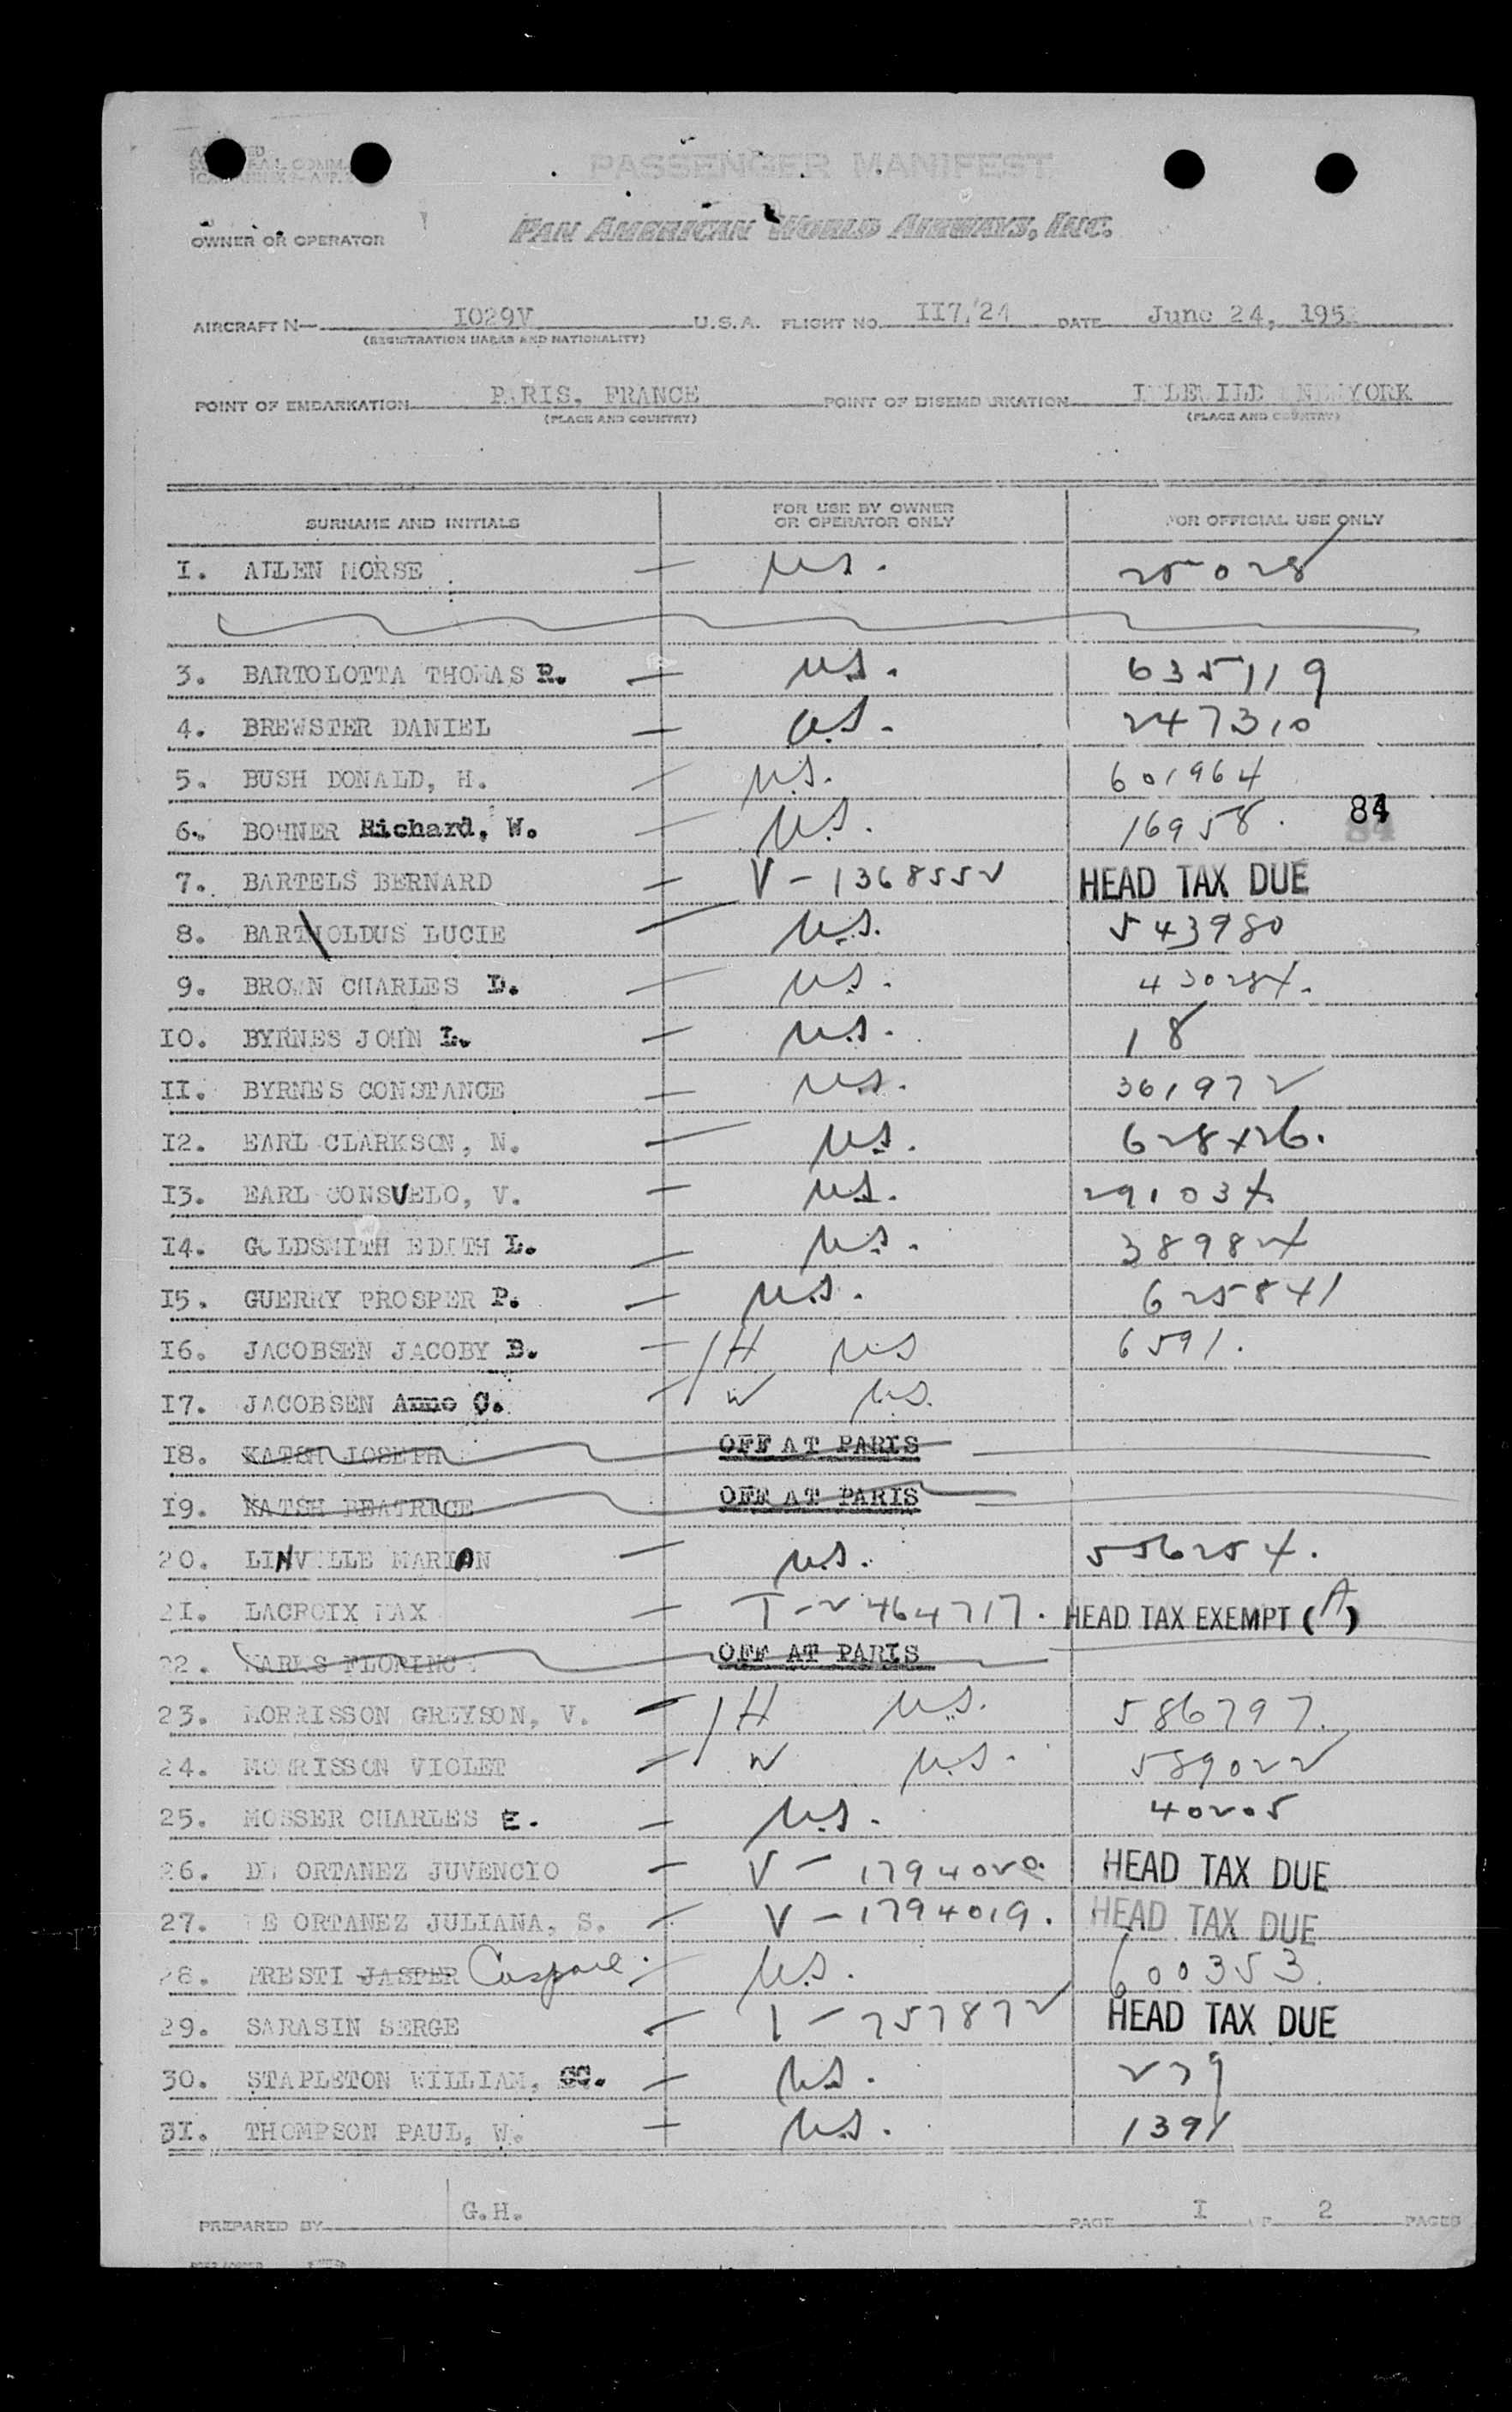 PASSENGER MANIFEST
OWNER OR OPERATOR PAN AMERICAN WORLD AIRWAYS, INC.
AIRCRAFT N— I029V U.S.A. FLIGHT NO. II7/24 DATE June 24, 195
(REGISTRATION MARKS AND NATIONALITY)
POINT OF EMBARKATION PARIS, FRANCE POINT OF DISEMBARKATION IDLEWILD NEW YORK
(PLACE AND COUNTRY) (PLACE AND COUNTRY)
SURNAME AND INITIALS FOR USE BY OWNER OR OPERATOR ONLY FOR OFFICIAL USE ONLY
I. ALLEN MORSE — U.S. 25028
3. BARTOLOTTA THOMAS R. — U.S. 635119
4. BREWSTER DANIEL — U.S. 247310
5. BUSH DONALD, H. — U.S. 601964
6. BOHNER Richard, W. — U.S. 16958. 84
7. BARTELS BERNARD — V-1368552 HEAD TAX DUE
8. BARTHOLDUS LUCIE — U.S. 543980
9. BROWN CHARLES D. — U.S. 430284.
I0. BYRNES JOHN L. — U.S. 18
II. BYRNES CONSTANCE — U.S. 361972
I2. EARL CLARKSON, N. — U.S. 628426.
I3. EARL CONSUELO, V. — U.S. 291034.
I4. GOLDSMITH EDITH L. — U.S. 38984
I5. GUERRY PROSPER P. — U.S. 625841
I6. JACOBSEN JACOBY B. — H U.S 6591.
I7. JACOBSEN Anne C. — W U.S.
I8. KATSH JOSEPH OFF AT PARIS
I9. KATSH BEATRICE OFF AT PARIS
20. LINVILLE MARIAN — U.S. 556254.
2I. LACROIX MAX — T-2464717. HEAD TAX EXEMPT (A)
22. MARKS FLORINCE OFF AT PARIS
23. MORRISSON GREYSON, V. — H U.S. 586797.
24. MORRISSON VIOLET — W U.S. 589022
25. MOSSER CHARLES E. — U.S. 40205
26. DE ORTANEZ JUVENCIO — V-1794020. HEAD TAX DUE
27. DE ORTANEZ JULIANA, S. — V-1794019. HEAD TAX DUE
28. PRESTI JASPER Caspare — U.S. 600353.
29. SARASIN SERGE — I-757872 HEAD TAX DUE
30. STAPLETON WILLIAM, — U.S. 279
3I. THOMPSON PAUL, W. — U.S. 1391
PREPARED BY G.H. PAGE I OF 2 PAGES